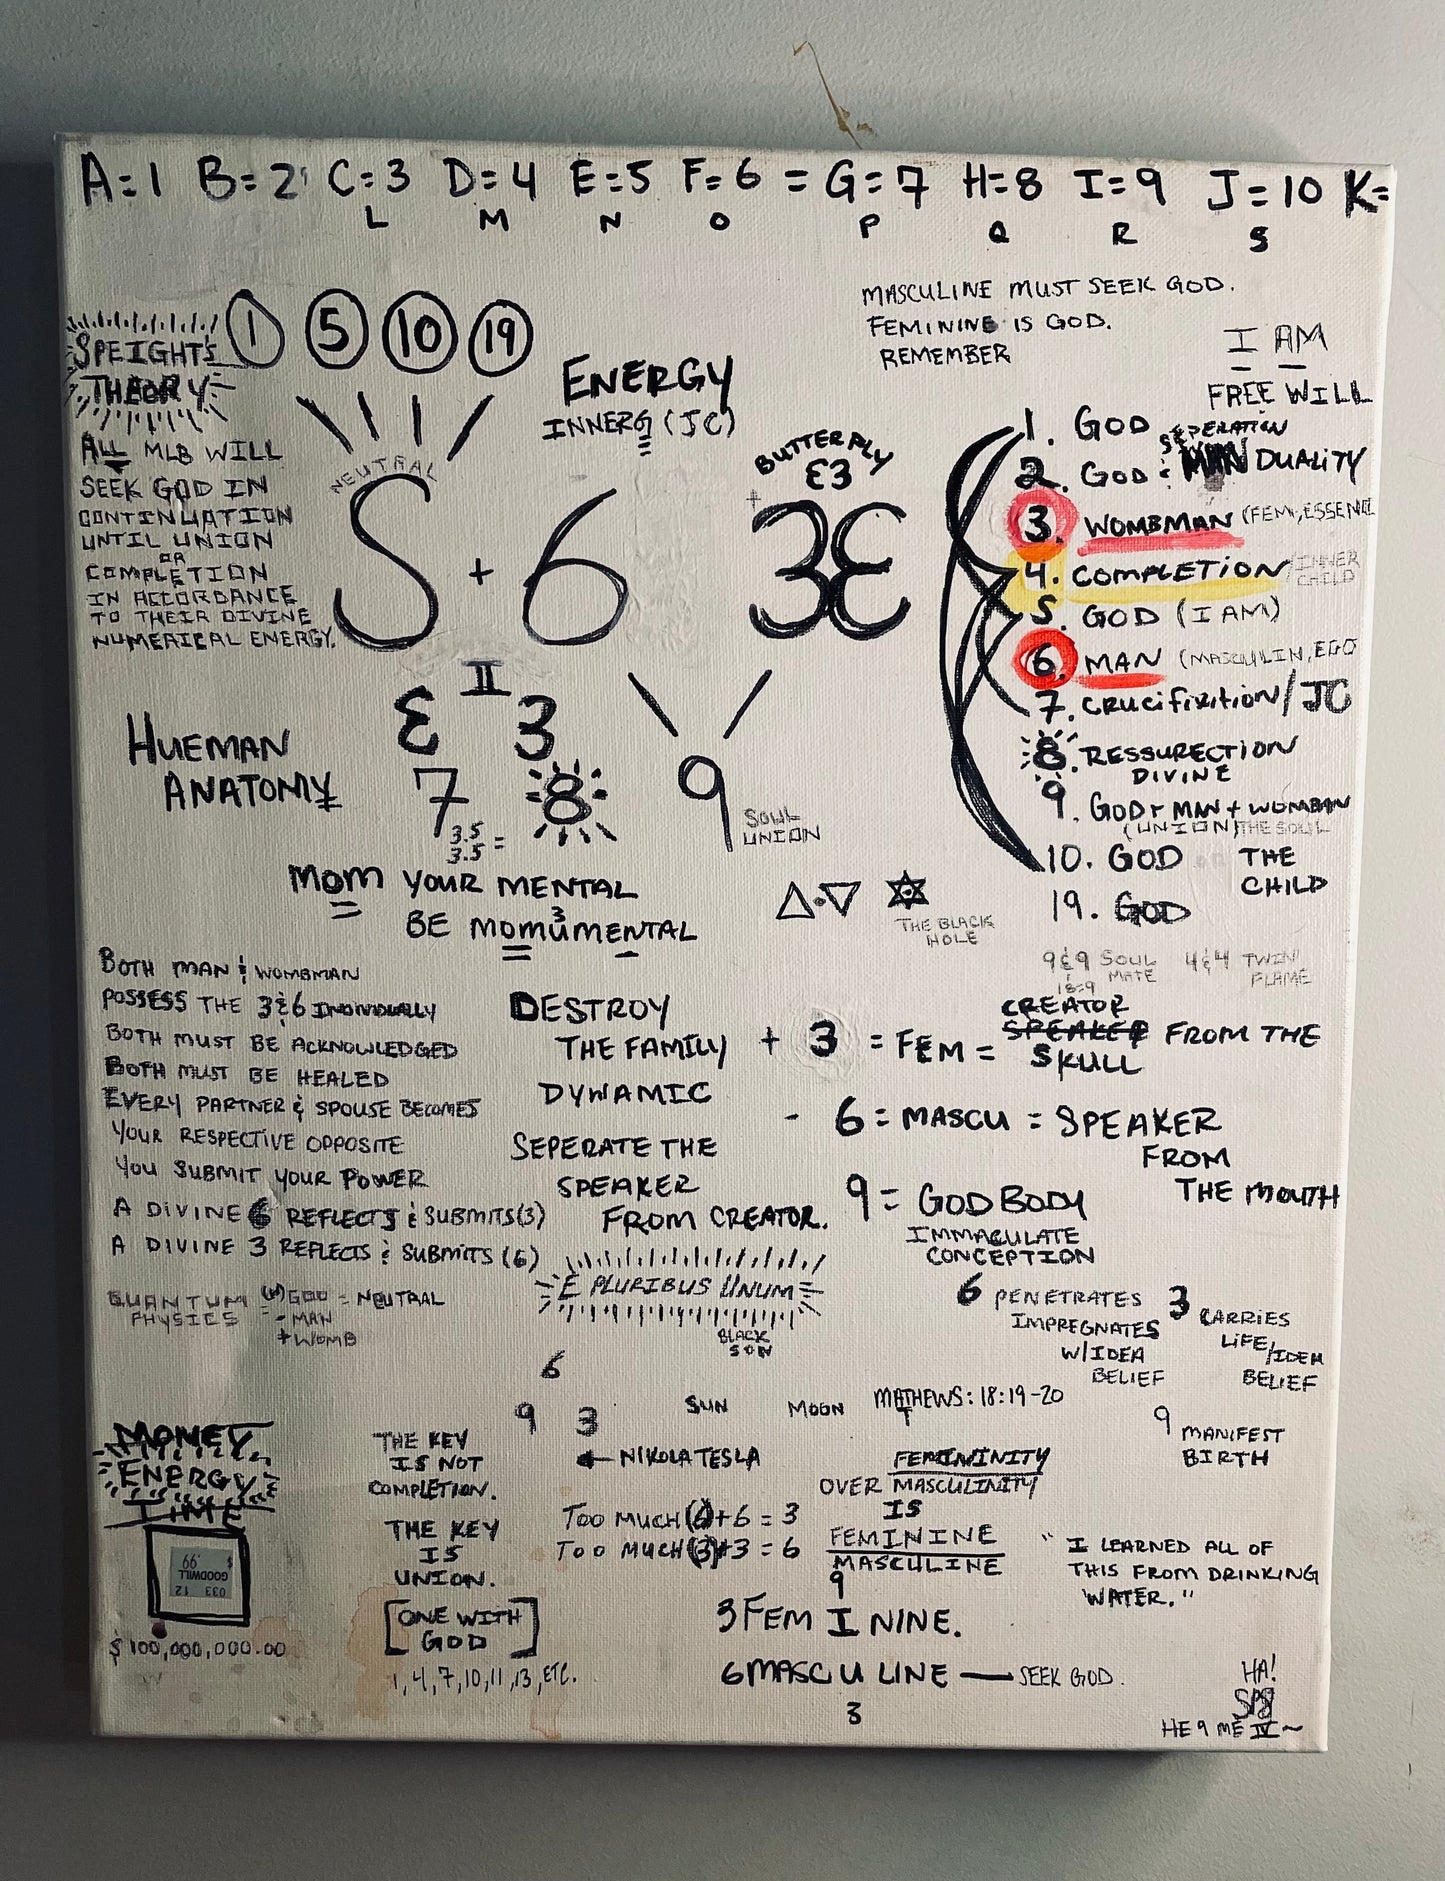 A=1 B=2 C=3 D=4 E=5 F=6 = G=7 H=8 I=9 J=10 K=
L M N O P Q R S
MASCULINE MUST SEEK GOD.
FEMININE IS GOD.
REMEMBER
I AM
FREE WILL
SPEIGHT'S
THEORY
1 5 10 19
ALL MLB WILL
SEEK GOD IN
CONTINUATION
UNTIL UNION
OR
COMPLETION
IN ACCORDANCE
TO THEIR DIVINE
NUMERICAL ENERGY.
ENERGY
INNERG (JC)
NEUTRAL
S + 6
BUTTERFLY
Ɛ3
3Ɛ
1. GOD
SEPERATION
2. GOD & MAN DUALITY
3. WOMBMAN (FEM, ESSENCE
4. COMPLETION / INNER
CHILD
5. GOD (I AM)
6. MAN (MASCULIN, EGO
7. CRUCIFIXITION/JC
8. RESSURECTION
DIVINE
9. GOD + MAN + WOMBAN
(UNION) THE SOUL
10. GOD THE
CHILD
19. GOD
II
Ɛ 3
7 8
3.5
3.5 =
9
SOUL
UNION
HUEMAN
ANATOMY
MOM YOUR MENTAL
BE MOMUMENTAL
3
THE BLACK
HOLE
9&9 SOUL
MATE
18=9
4&4 TWIN
FLAME
BOTH MAN & WOMBMAN
POSSESS THE 3&6 INDIVIDUALLY
BOTH MUST BE ACKNOWLEDGED
BOTH MUST BE HEALED
EVERY PARTNER & SPOUSE BECOMES
YOUR RESPECTIVE OPPOSITE
YOU SUBMIT YOUR POWER
A DIVINE 6 REFLECTS & SUBMITS(3)
A DIVINE 3 REFLECTS & SUBMITS (6)
QUANTUM
PHYSICS
GOD = NEUTRAL
- MAN
+ WOMB
DESTROY
THE FAMILY
DYNAMIC
SEPERATE THE
SPEAKER
FROM CREATOR.
+ 3 = FEM = CREATOR
SPEAKER FROM THE
SKULL
- 6 = MASCU = SPEAKER
FROM
THE MOUTH
9 = GOD BODY
IMMACULATE
CONCEPTION
E PLURIBUS UNUM
BLACK
SON
6 PENETRATES
IMPREGNATES
W/IDEA
BELIEF
3 CARRIES
LIFE/IDEA
BELIEF
6
9 3
SUN MOON MATHEWS: 18:19-20
T
9 MANIFEST
BIRTH
← NIKOLA TESLA
MONEY
ENERGY
TIME
GOODWILL
033 12
$ .99
$100,000,000.00
THE KEY
IS NOT
COMPLETION.
THE KEY
IS
UNION.
[ONE WITH
GOD]
1, 4, 7, 10, 11, 13, ETC.
TOO MUCH (6)+6 = 3
TOO MUCH (3)+3 = 6
FEMININITY
OVER MASCULINITY
IS
FEMININE
MASCULINE
9
3 FEM I NINE.
6 MASC U LINE — SEEK GOD.
3
"I LEARNED ALL OF
THIS FROM DRINKING
WATER."
HA!
HE 9 ME IV~